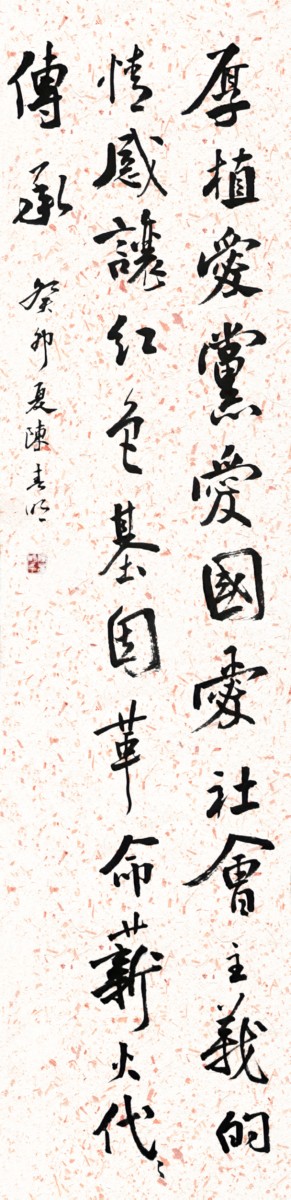 厚植愛黨愛國愛社會主義的
情感讓红色基因革命薪火代〻
傳承
癸卯夏陳春明